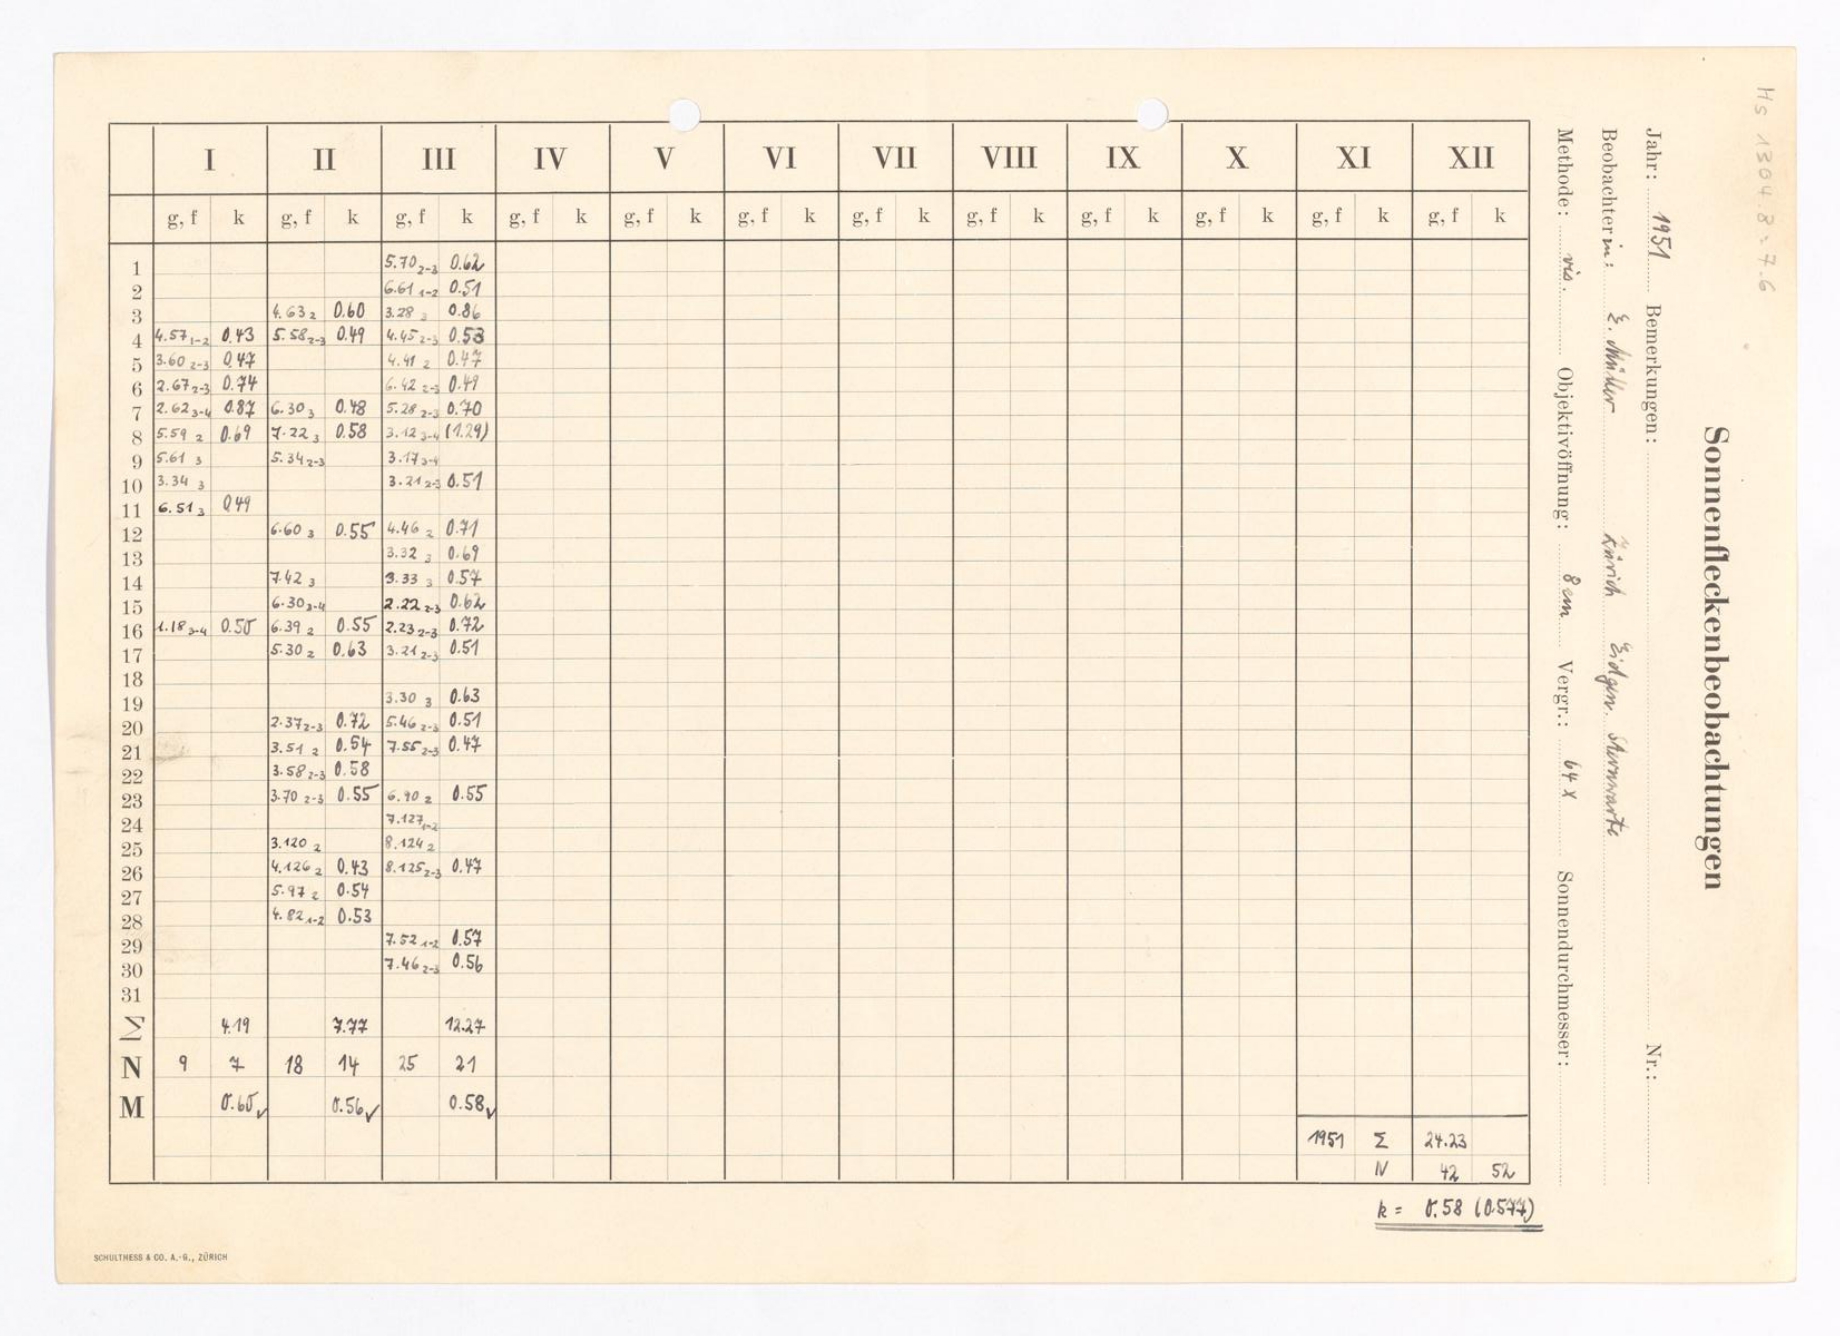 Hs 1304.8:7.6
Sonnenfleckenbeobachtungen
Jahr: 1951 Bemerkungen: Nr.:
Beobachterin: E. Müller Zürich Eidgen. Sternwarte
Methode: vis. Objektivöffnung: 8 cm Vergr.: 64 x Sonnendurchmesser:
I II III IV V VI VII VIII IX X XI XII
g, f k g, f k g, f k g, f k g, f k g, f k g, f k g, f k g, f k g, f k g, f k g, f k
1 5.70 2-3 0.62
2 6.61 1-2 0.51
3 4.63 2 0.60 3.28 3 0.86
4 4.57 1-2 0.43 5.58 2-3 0.49 4.45 2-3 0.53
5 3.60 2-3 0.47 4.41 2 0.47
6 2.67 2-3 0.74 6.42 2-3 0.49
7 2.62 3-4 0.87 6.30 3 0.48 5.28 2-3 0.70
8 5.59 2 0.69 7.22 3 0.58 3.12 3-4 (1.29)
9 5.61 3 5.34 2-3 3.17 3-4
10 3.34 3 3.21 2-3 0.51
11 6.51 3 0.49
12 6.60 3 0.55 4.46 2 0.71
13 3.32 3 0.69
14 7.42 3 3.33 3 0.57
15 6.30 3-4 2.22 2-3 0.62
16 1.18 3-4 0.50 6.39 2 0.55 2.23 2-3 0.72
17 5.30 2 0.63 3.21 2-3 0.51
18
19 3.30 3 0.63
20 2.37 2-3 0.72 5.46 2-3 0.51
21 3.51 2 0.54 7.55 2-3 0.47
22 3.58 2-3 0.58
23 3.70 2-3 0.55 6.90 2 0.55
24 7.127 1-2
25 3.120 2 8.124 2
26 4.126 2 0.43 8.125 2-3 0.47
27 5.97 2 0.54
28 4.82 1-2 0.53
29 7.52 1-2 0.57
30 7.46 2-3 0.56
31
Σ 4.19 7.77 12.27
N 9 7 18 14 25 21
M 0.60✓ 0.56✓ 0.58✓
1951 Σ 24.23
N 42 52
k = 0.58 (0.577)
SCHULTHESS & CO. A.-G., ZÜRICH